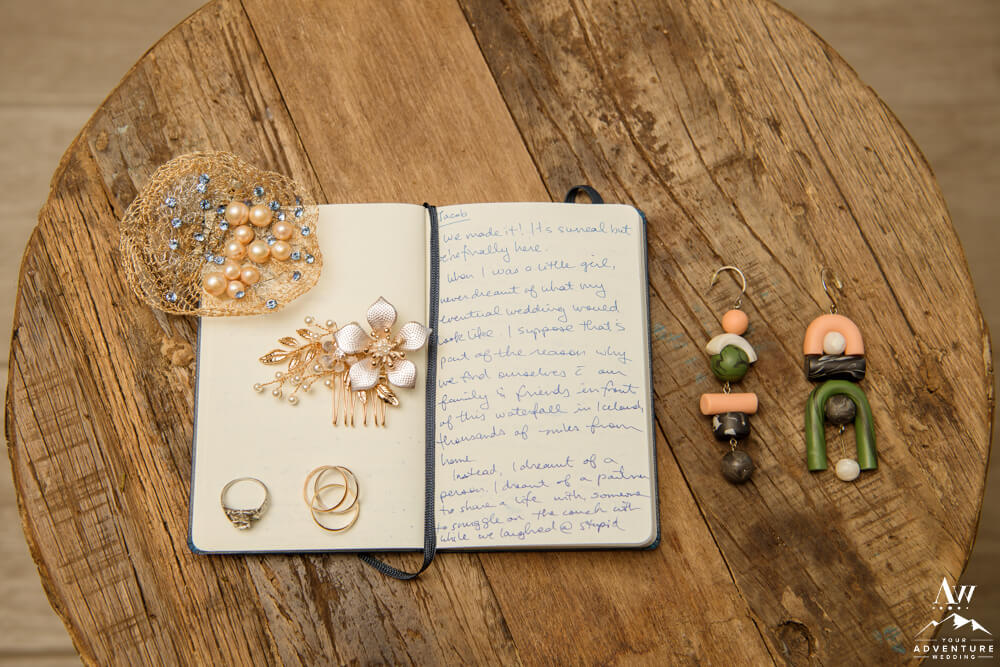 Jacob
We made it! It's surreal but
we're finally here.
When I was a little girl,
never dreamt of what my
eventual wedding would
look like. I suppose that's
part of the reason why
we find ourselves c̄ our
family & friends in front
of this waterfall in Iceland,
thousands of miles from
home.
Instead, I dreamt of a
person. I dreamt of a partner
to share a life with, someone
to snuggle on the couch with
while we laughed @ stupid
AW
YOUR
ADVENTURE
WEDDING